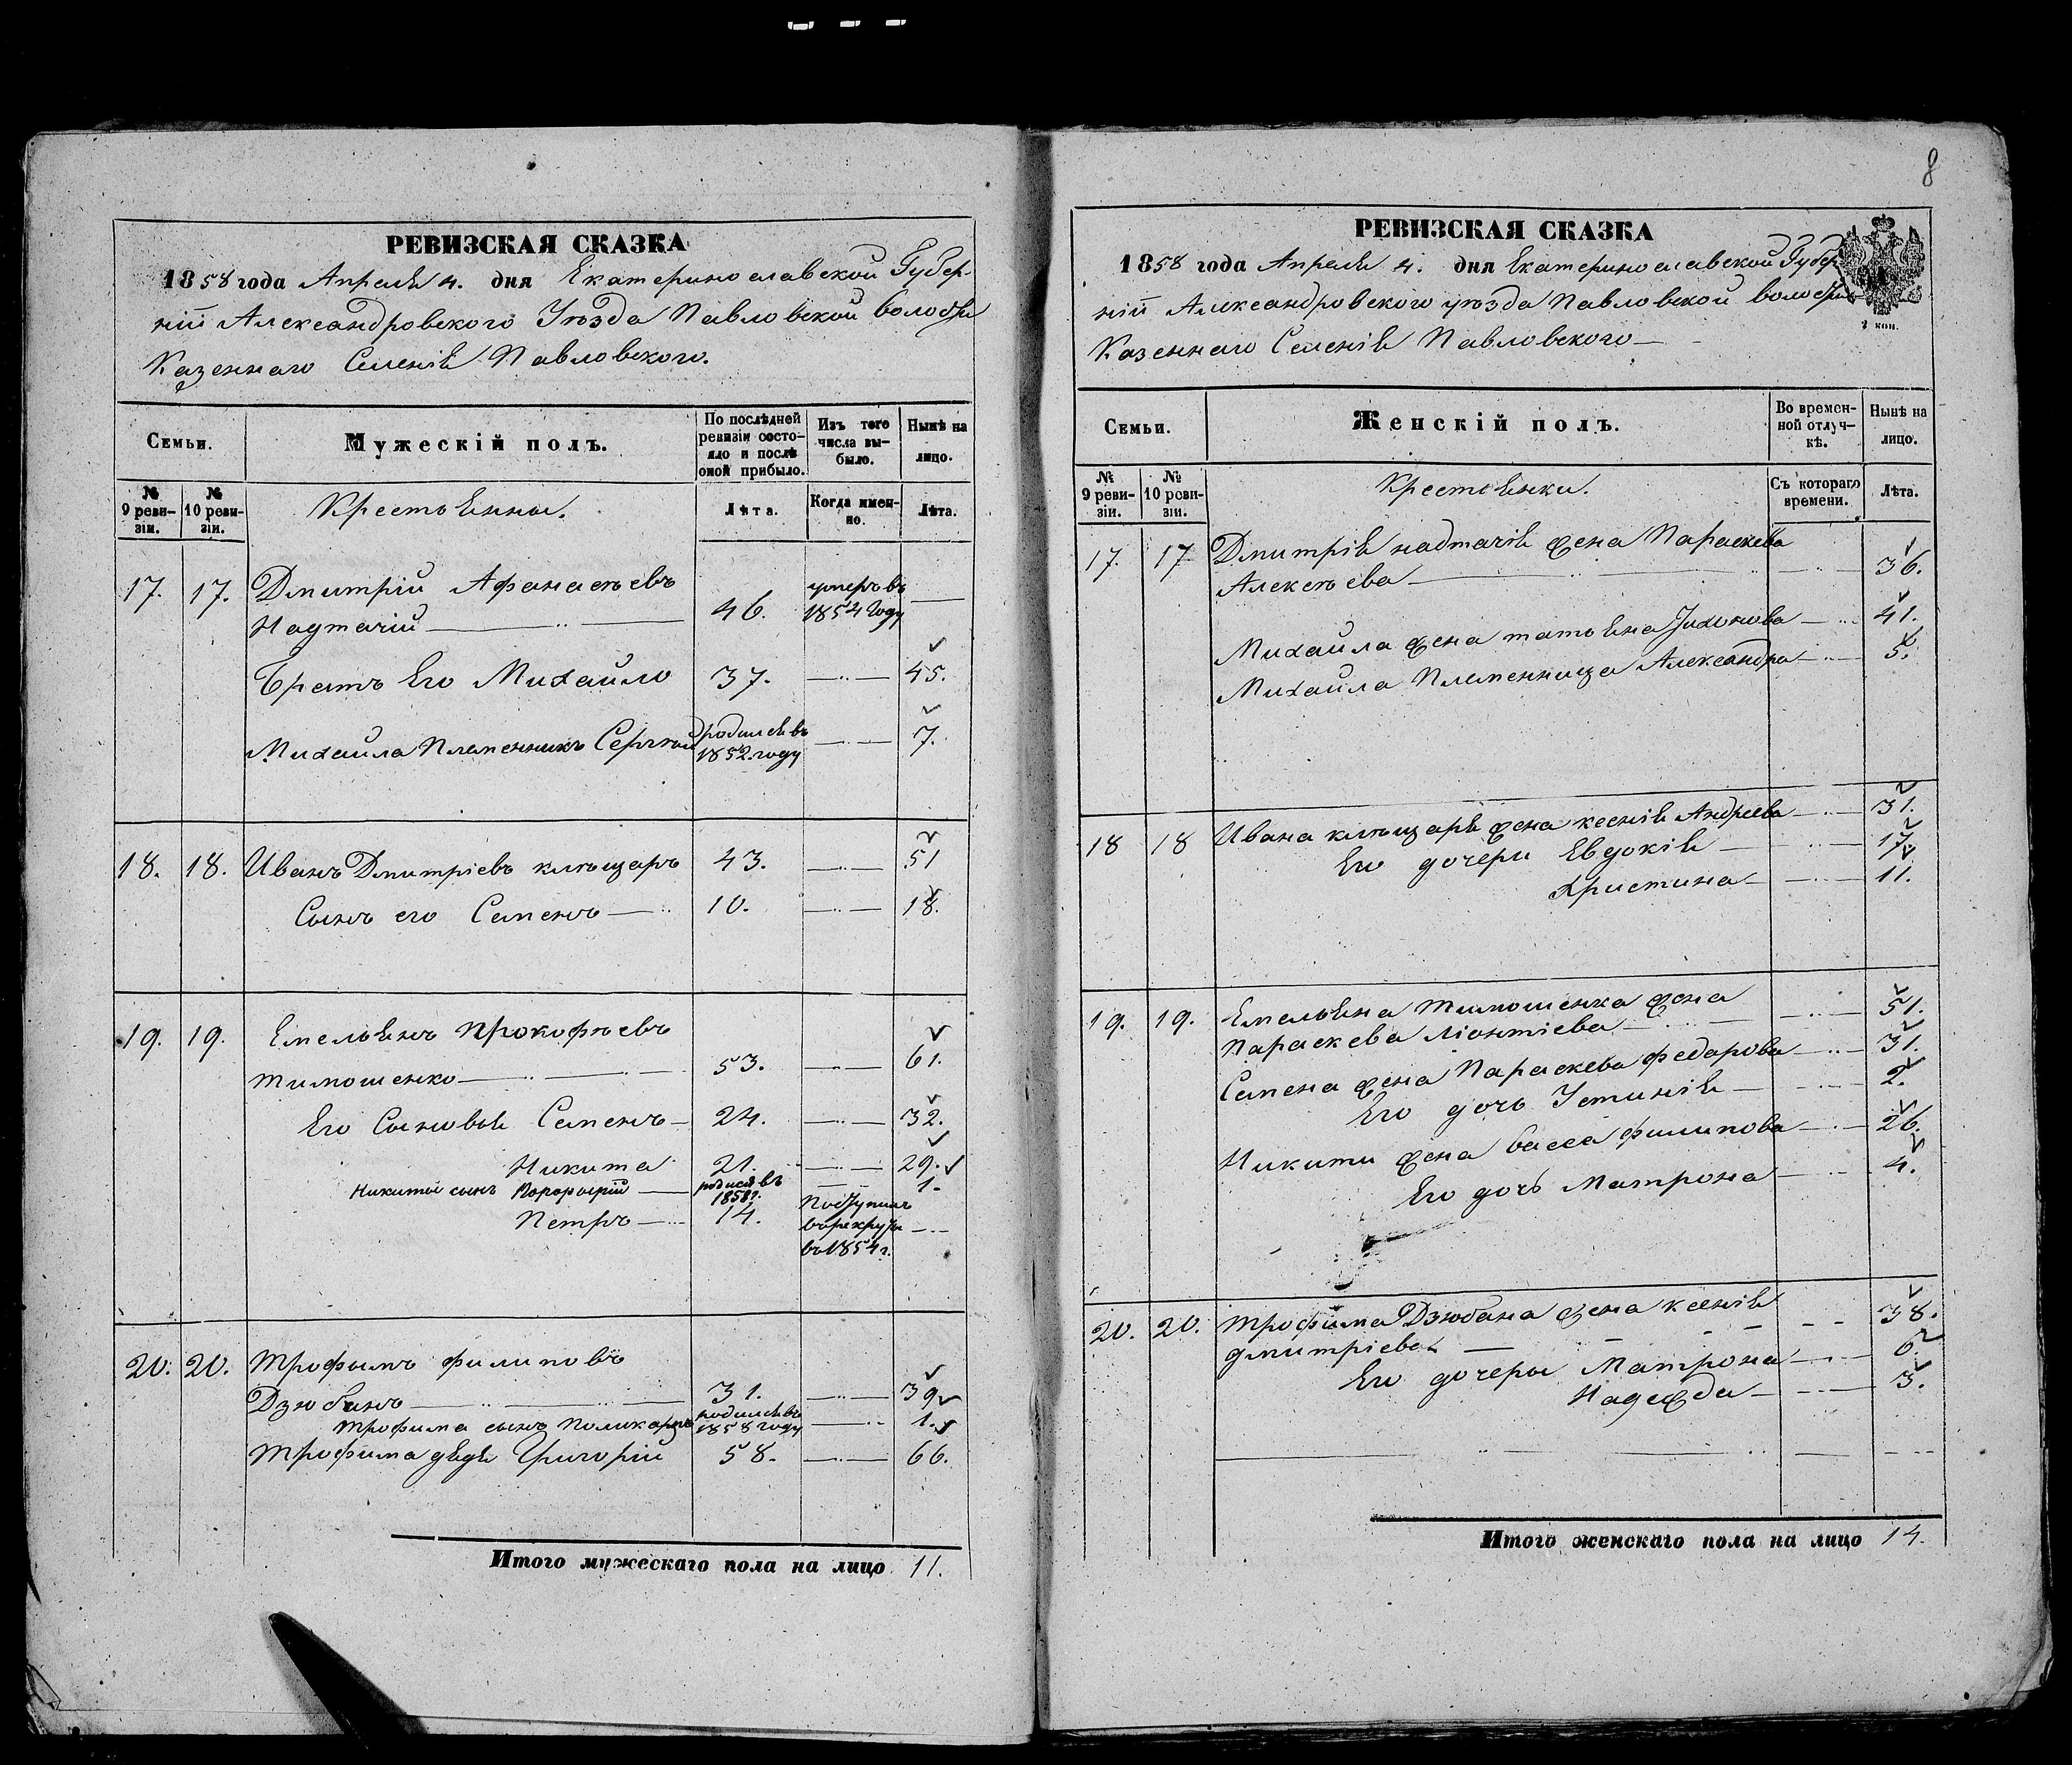 8
РЕВИЗСКАЯ СКАЗКА
1858 года Апреля 4. дня Екатеринославской Губер-
ніи Александровского Уѣзда Павловской волости
Казеннаго Селенія Павловского.
Семьи.
Мужескій полъ.
По послѣдней ревизіи состо-яло и послѣ оной прибыло.
Изъ того числа вы-было.
Нынѣ на лицо.
№ 9 реви-зіи.
№ 10 реви-зіи.
Крестьянны.
Лѣта.
Когда имен-но.
Лѣта.
17. 17. Дмитрій Афанасьевъ
Надтачій 46. умеръ въ 1854 году
Братъ Его Михайло 37. 45.
Михайла Племенникъ Сергѣй родился въ 1852 году 7.
18. 18. Иванъ Дмитріевъ клющаръ 43. 51
Сынъ его Семенъ 10. 18.
19. 19. Емельянъ Прокофьевъ
Тимошенко 53. 61.
Его Сыновья Семенъ 24. 32.
Никита 21. 29.
Никиты сынъ родися въ 1858 г. 1.
Петръ 14. Поступилъ въ рекруты въ 1854 г.
20. 20. Трофымъ Филиповъ
Дзюбанъ 31. 39
Трофима сынъ Поликарпъ родился въ 1858 году 1.
Трофима дядя Григорій 58. 66.
Итого мужескаго пола на лицо 11.
РЕВИЗСКАЯ СКАЗКА
1858 года Апреля 4. дня Екатеринославской Губер
ніи Александровского уѣзда Павловской волости
Казеннаго Селенія Павловского
коп.
Семьи.
Женскій полъ.
Во времен-ной отлуч-кѣ.
Нынѣ на лицо.
№ 9 реви-зіи.
№ 10 реви-зіи.
Крестьянки.
Съ котораго времени.
Лѣта.
17. 17 Дмитрія надтачія жена Параскева
Алексѣева 36.
Михайла жена татьяна 41.
Михайла Племенница Александра 5.
18 18 Ивана клющаря жена ксенія Андреева 31.
Его дочери Евдокія 17.
Христина 11.
19. 19. Емельяна Тимошенка жена
Параскева Ліонтіева 51.
Семена жена Параскева Федорова 31.
Его дочь Устинія 2.
Никити жена Васса Филипова 26.
Его дочь Матрона 4.
20. 20. Трофима Дзюбана жена ксенія
дмитріева 38.
Его дочеры Матрона 6.
Надежда 3.
Итого женскаго пола на лицо 14.